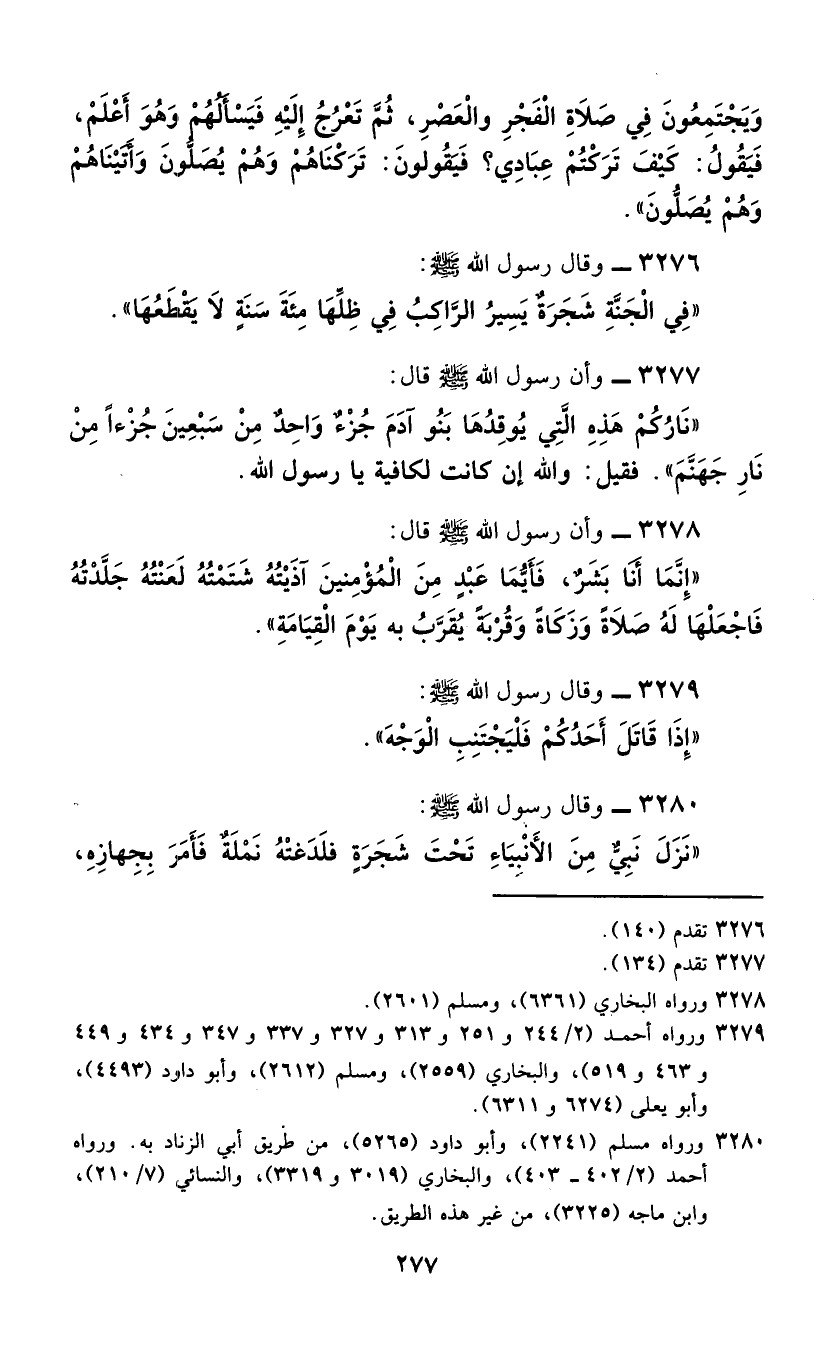 وَيَجْتَمِعُونَ فِي صَلَاةِ الْفَجْرِ والْعَصْرِ، ثُمَّ تَعْرُجُ إِلَيْهِ فَيَسْأَلُهُمْ وَهُوَ أَعْلَمْ،
فَيَقُولُ: كَيْفَ تَرَكْتُمْ عِبَادِي؟ فَيَقُولونَ: تَرَكْنَاهُمْ وَهُمْ يُصَلُّونَ وَأَتَيْنَاهُمْ
وَهُمْ يُصَلُّونَ».
٣٢٧٦ ــ وقال رسول الله ﷺ:
«فِي الْجَنَّةِ شَجَرَةٌ يَسِيرُ الرَّاكِبُ فِي ظِلِّهَا مِئَةَ سَنَةٍ لَا يَقْطَعُهَا».
٣٢٧٧ ــ وأن رسول الله ﷺ قال:
«نَارُكُمْ هَذِهِ الَّتِي يُوقِدُهَا بَنُو آدَمَ جُزْءٌ وَاحِدٌ مِنْ سَبْعِينَ جُزْءاً مِنْ
نَارِ جَهَنَّمَ». فقيل: والله إن كانت لكافية يا رسول الله.
٣٢٧٨ ــ وأن رسول الله ﷺ قال:
«إِنَّمَا أَنَا بَشَرٌ، فَأَيُّمَا عَبْدٍ مِنَ الْمُؤْمِنينَ آذَيْتُهُ شَتَمْتُهُ لَعَنْتُهُ جَلَّدْتُهُ
فَاجْعَلْهَا لَهُ صَلَاةً وَزَكَاةً وَقُرْبَةً يُقَرَّبُ به يَوْمَ الْقِيَامَةِ».
٣٢٧٩ ــ وقال رسول الله ﷺ:
«إِذَا قَاتَلَ أَحَدُكُمْ فَلْيَجْتَنِبِ الْوَجْهَ».
٣٢٨٠ ــ وقال رسول الله ﷺ:
«نَزَلَ نَبِيٌّ مِنَ الأَنْبِيَاءِ تَحْتَ شَجَرَةٍ فلَدَغتْهُ نَمْلَةٌ فَأَمَرَ بِجِهازِهِ،
٣٢٧٦ تقدم (١٤٠).
٣٢٧٧ تقدم (١٣٤).
٣٢٧٨ ورواه البخاري (٦٣٦١)، ومسلم (٢٦٠١).
٣٢٧٩ ورواه أحمد (٢/ ٢٤٤ و ٢٥١ و ٣١٣ و ٣٢٧ و ٣٣٧ و ٣٤٧ و ٤٣٤ و ٤٤٩
و ٤٦٣ و ٥١٩)، والبخاري (٢٥٥٩)، ومسلم (٢٦١٢)، وأبو داود (٤٤٩٣)،
وأبو يعلى (٦٢٧٤ و ٦٣١١).
٣٢٨٠ ورواه مسلم (٢٢٤١)، وأبو داود (٥٢٦٥)، من طريق أبي الزناد به. ورواه
أحمد (٢/ ٤٠٢ ـ ٤٠٣)، والبخاري (٣٠١٩ و ٣٣١٩)، والنسائي (٧/ ٢١٠)،
وابن ماجه (٣٢٢٥)، من غير هذه الطريق.
٢٧٧